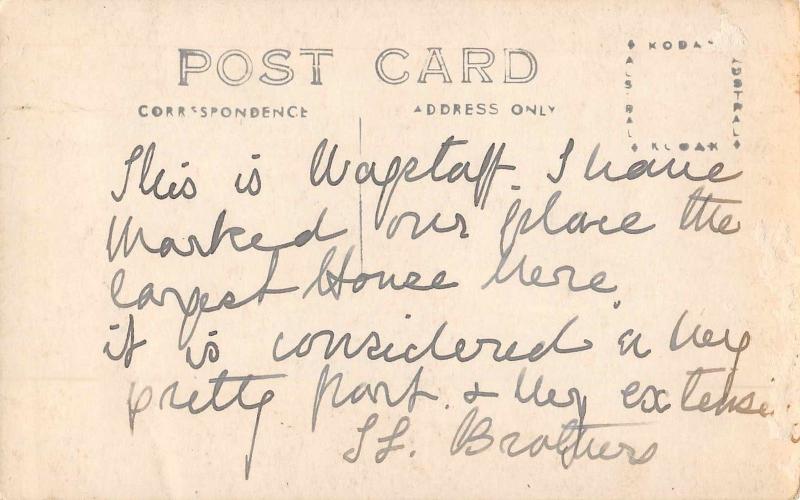 POST CARD
CORRESPONDENCE
ADDRESS ONLY
KODA
AUSTRAL
AUSTRAL
KODAK
This is Wagstaff. I have
Marked our place the
largest House here.
it is considered a very
pretty part. & very extensi
Brothers